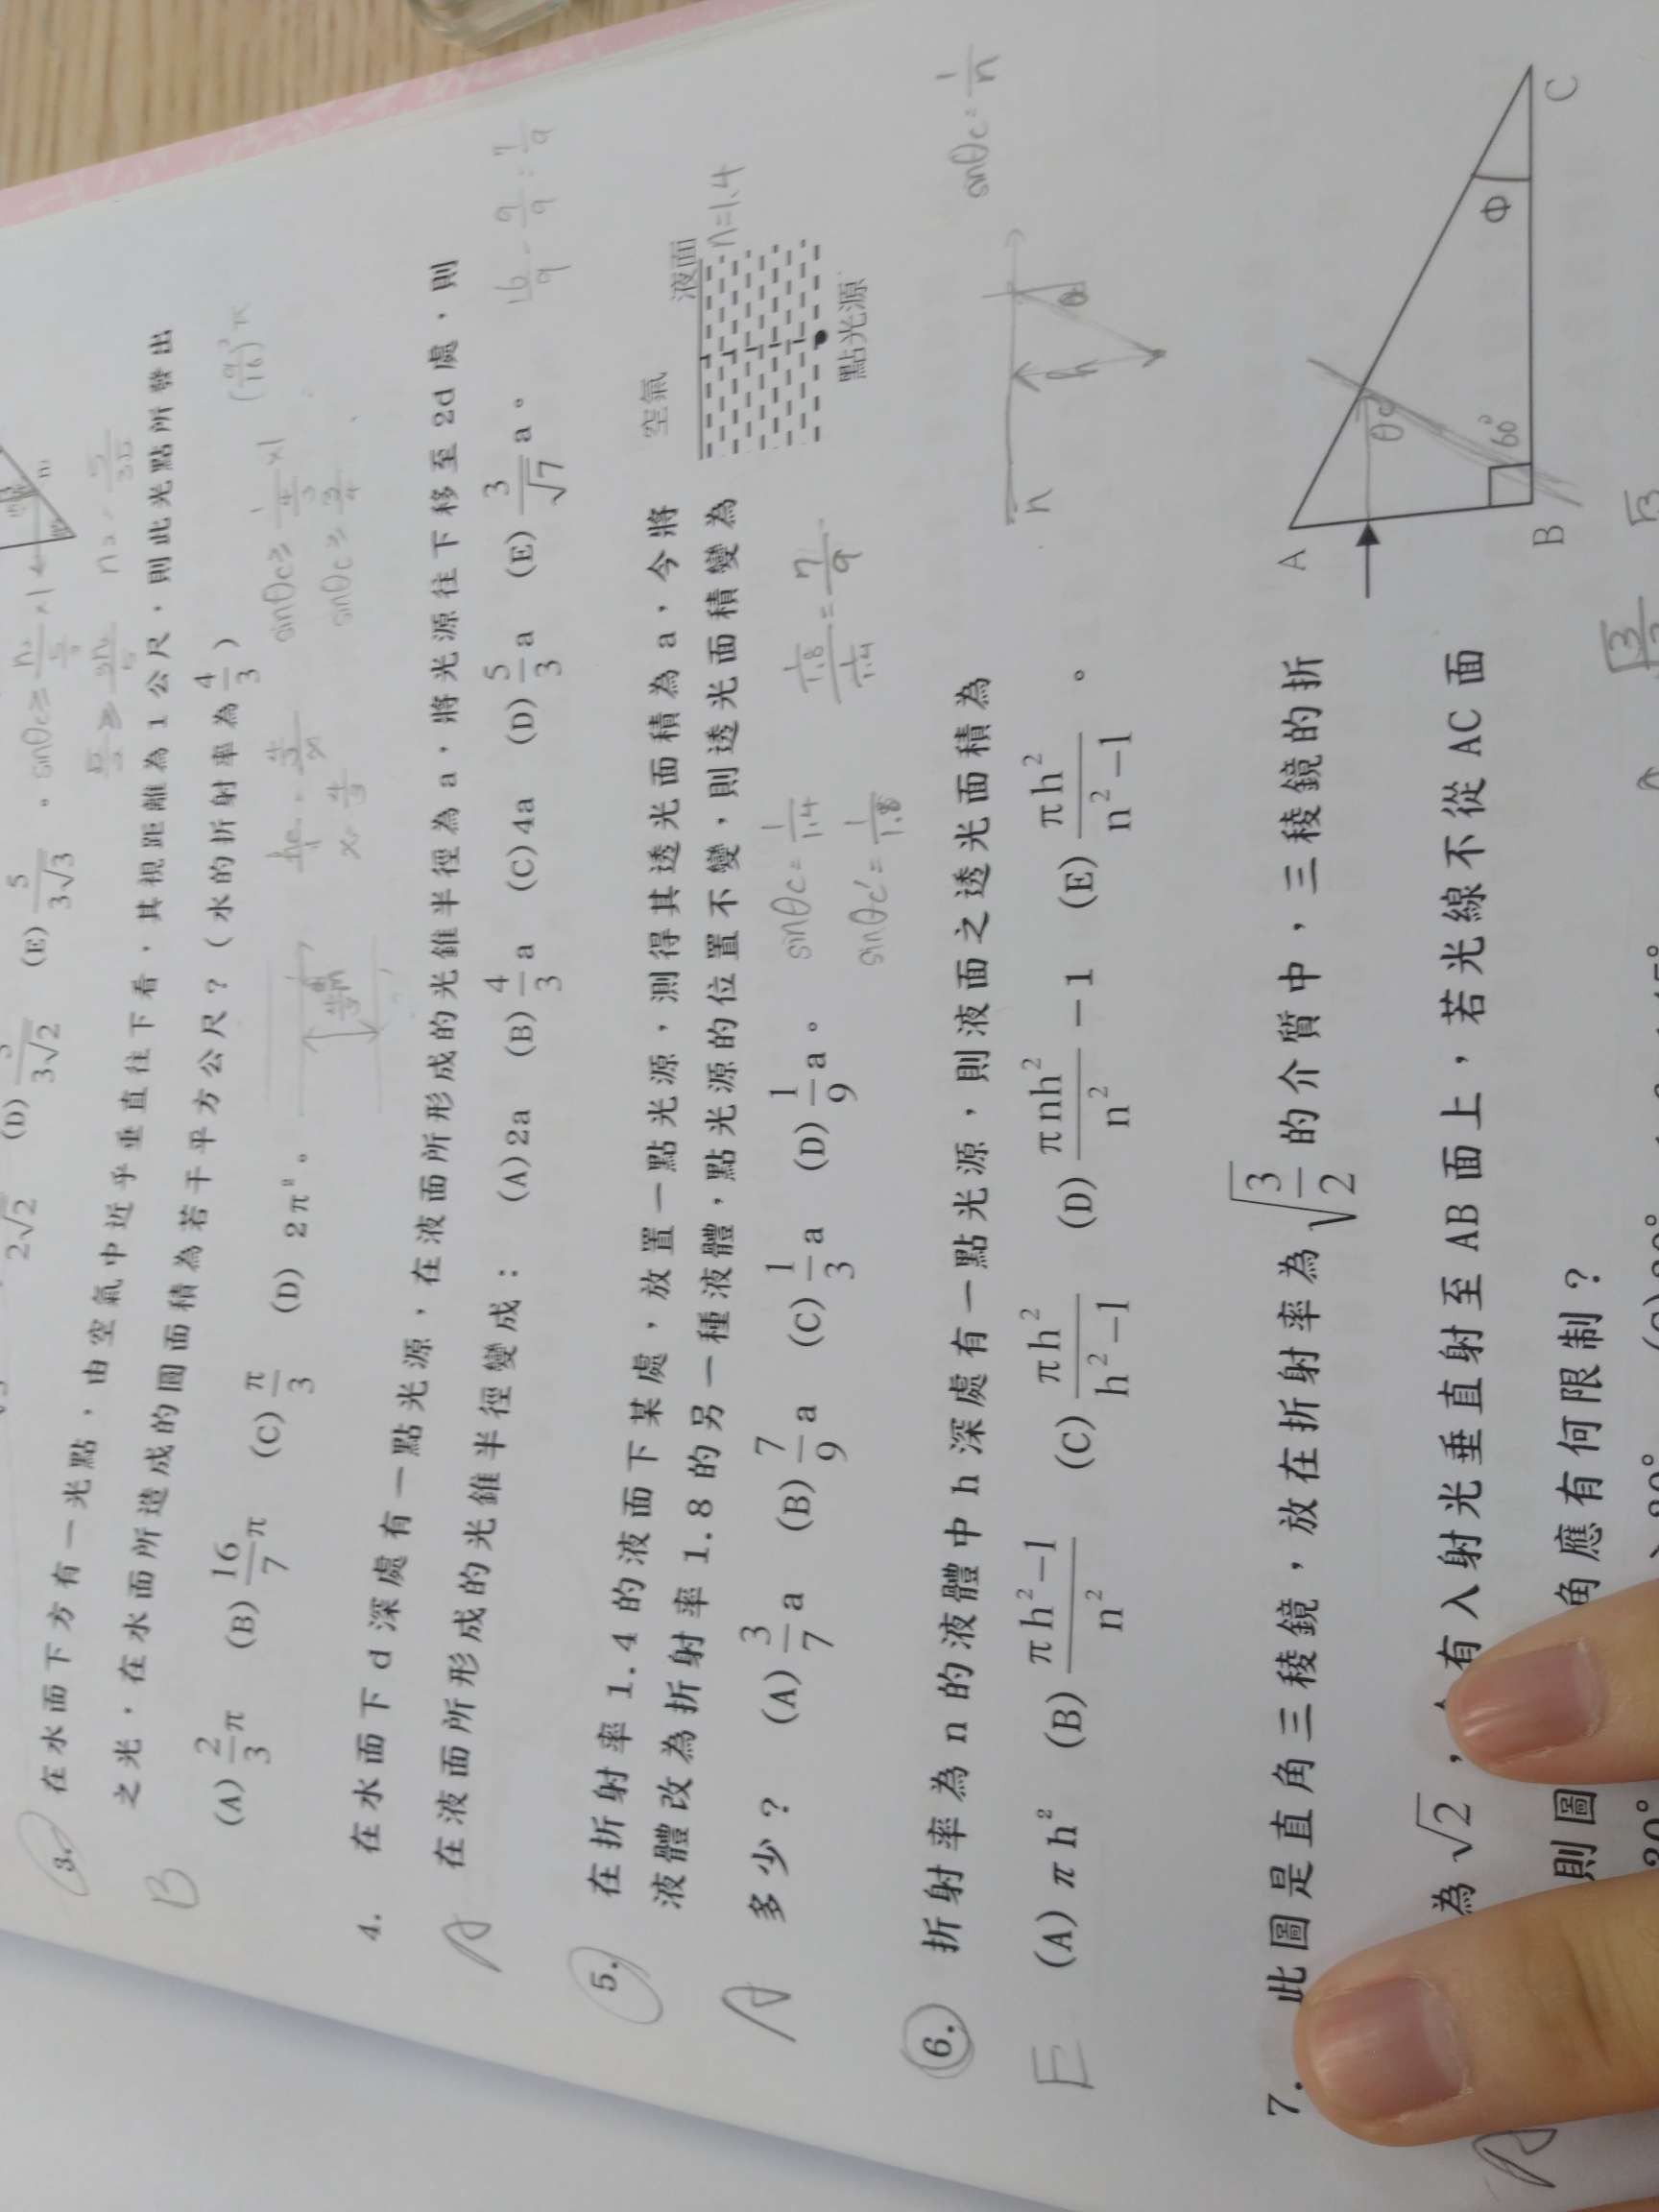 2√2 (D) 3√2 (E) 5/(3√3) 。
sinθc≥
3. 在水面下方有一光點,由空氣中近乎垂直往下看,其視距離為1公尺,則此光點所發出
之光,在水面所造成的圓面積為若干平方公尺?(水的折射率為4/3)
B
(A) 2/3 π (B) 16/7 π (C) π/3 (D) 2π²。
sinθc≥
sinθc≥ 3/4
4. 在水面下d深處有一點光源,在液面所形成的光錐半徑為a,將光源往下移至2d處,則
在液面所形成的光錐半徑變成: (A)2a (B) 4/3 a (C)4a (D) 5/3 a (E) 3/√7 a。
A
16/9 - 9/9 = 7/9
5. 在折射率1.4的液面下某處,放置一點光源,測得其透光面積為a,今將
液體改為折射率1.8的另一種液體,點光源的位置不變,則透光面積變為
多少? (A) 3/7 a (B) 7/9 a (C) 1/3 a (D) 1/9 a。
A
空氣
液面
n=1.4
點光源
sinθc = 1/1.4
sinθc' = 1/1.8
(1/1.8)/(1/1.4) = 7/9
6. 折射率為n的液體中h深處有一點光源,則液面之透光面積為
E
(A) πh² (B) (πh²-1)/n² (C) πh²/(h²-1) (D) πnh²/n² -1 (E) πh²/(n²-1) 。
n
h
θ
sinθc = 1/n
7. 此圖是直角三稜鏡,放在折射率為√(3/2)的介質中,三稜鏡的折
為√2, 有入射光垂直射至AB面上,若光線不從AC面
則圖 角應有何限制?
A
A
B
C
Φ
θc
60°
30°